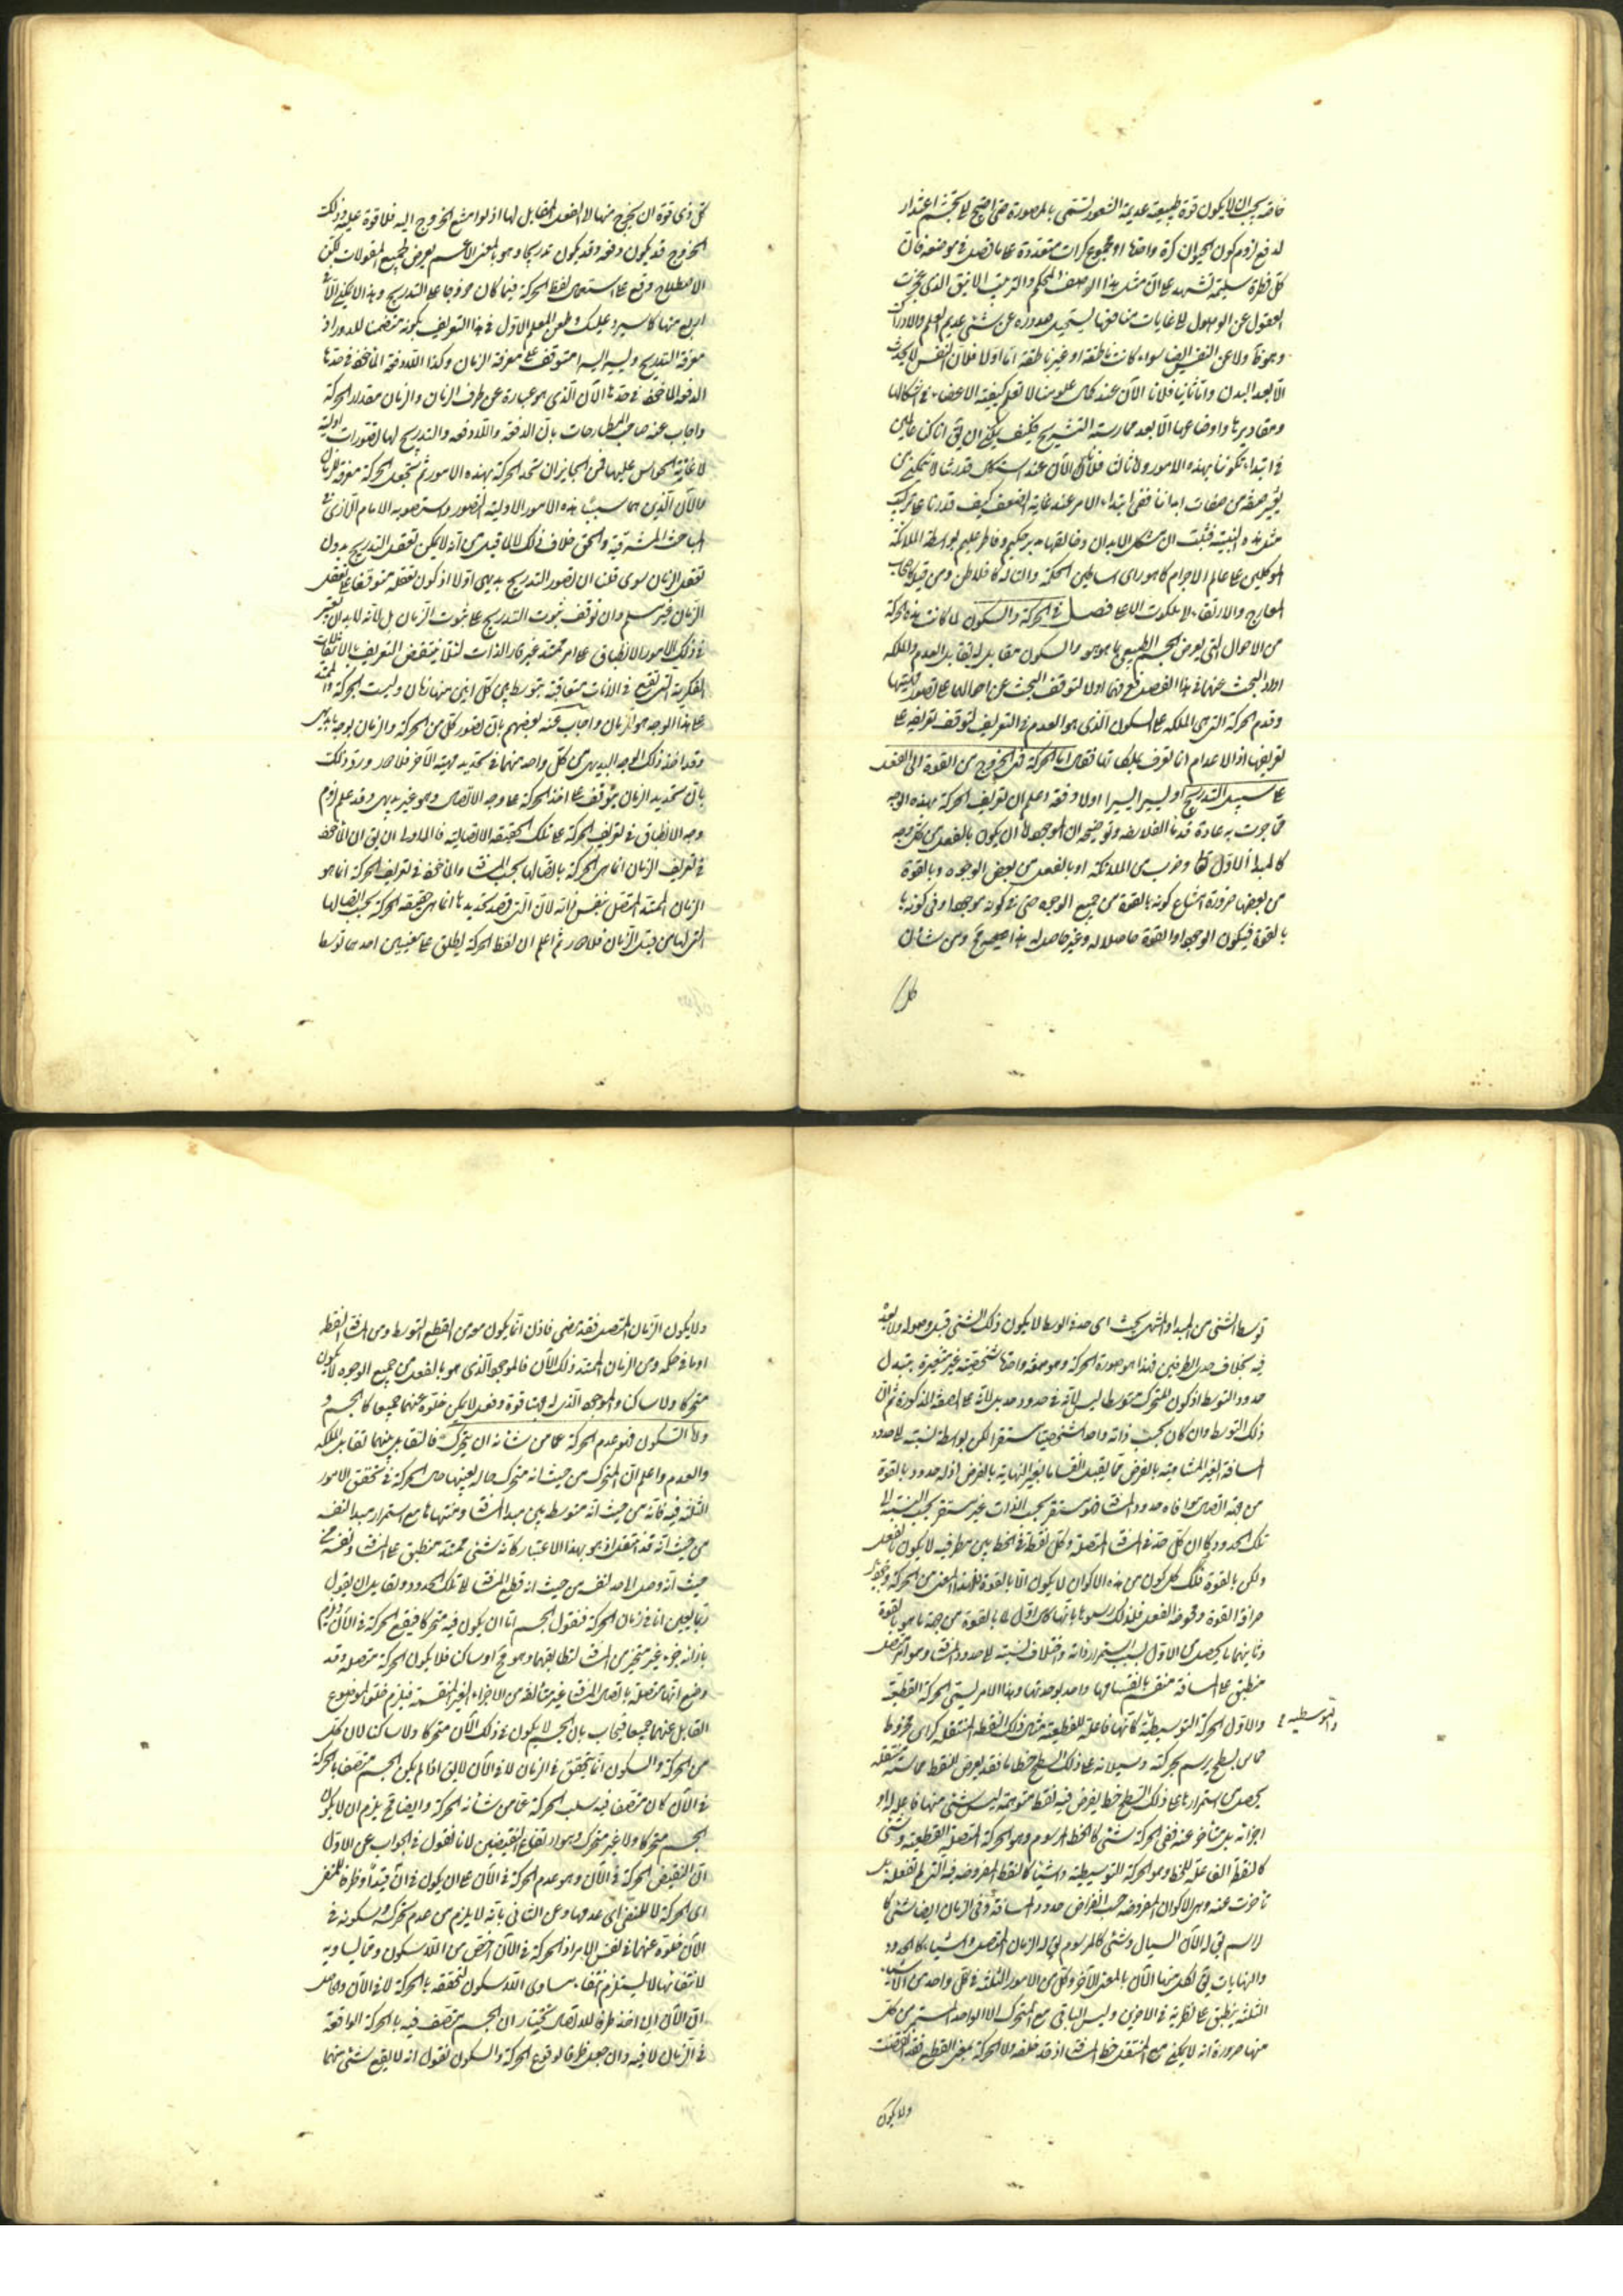 خاصه يجب ان لا يكون قوة طبيعية عديمة الشعور تسمى بالمصورة حتى احتيج الى تجشم اعتذار
لدفع لزوم كون الحيوان كرة واحدة او مجموع كرات متعددة على ما فصل في موضعه فان
كل فطرة سليمة تشهد على ان مثل هذا الوصف المحكم والترتيب الانيق الذي عجزت
العقول عن الوصول الى غايات منافعها يستحيل صدوره عن شئ عديم العلم والادراك
ولا عن النفس ايضا سواء كانت ناطقة او غير ناطقة اما اولا فلان النفس لا يحدث
الا بعد البدن واما ثانيا فلانا الآن عند كمال علومنا لا نعلم كيفية الاعضاء في اشكالها
ومقاديرها واوضاعها الا بعد ممارسة التشريح فكيف يمكن ان يق انا كنا عالمين
في ابتداء تكوننا بهذه الامور وثالثا فلانا الآن عند استكمال قدرتنا لا نتمكن من
تغيير صفة من صفات ابداننا ففي ابتداء الامر عند غاية الضعف كيف قدرنا على تركيب
مثل هذه البنية فثبت ان مشكل الابدان وخالقها مدبر حكيم وفاطر عليم بواسطة الملائكة
الموكلين على عالم الاجرام كما هو راى اساطين الحكمة والتاله كافلاطن ومن قبله من اصحاب
المعارج والارتقاء الى ملكوت الاعلى فصل في الحركة والسكون لما كانت هذه الحركة
من الاحوال التي يعرض الجسم الطبيعي بما هو هو والسكون مقابل له تقابل العدم والملكة
اورد البحث عنها في هذا الفصل فوقع فيها اولا لتوقف البحث عن احوالها على تصور مهيتها
وقدم الحركة التي هي الملكة على السكون الذي هو العدم في التعريف لتوقف تعريفه على
تعريفها اذ الاعدام انما تعرف بملكاتها فقال اما الحركة فهي الخروج من القوة الى الفعل
على سبيل التدريج او يسيرا يسيرا او لا دفعة اعلم ان تعريف الحركة بهذه الوجه
مما جرت به عادة قدماء الفلاسفه وتوضيحه ان الموجود اما ان يكون بالفعل من كل وجه
كالمبدأ الاول تعالى وضرب من الملائكة او بالفعل من بعض الوجوه وبالقوة
من بعضها ضرورة امتناع كونه بالقوة من جميع الوجوه حتى في كونه موجودا وفي كونه با
بالقوة فيكون الوجود والقوة حاصلا له وغير حاصل له هذا صحيح ومن شان
كل
كل ذي قوة ان يخرج منها الى الفعل المقابل لها اذ لو امتنع الخروج اليه فلا قوة عليه وذلك
الخروج قد يكون دفعة وقد يكون تدريجا وهو بالمعنى الاعم يعرض لجميع المقولات لكن
الاصطلاح وقع على استعمال لفظ الحركة فيما كان خروجا على التدريج وهذا لا يمكن الا في
اربع منها كما سيرد عليك وطعن المعلم الاول في هذا التعريف بكونه متضمنا للدور اذ
معرفة التدريج ويسيرا يسيرا متوقف على معرفة الزمان وكذا اللادفعة الماخوذ في حدها
الدفعة الماخوذ في حدها الآن الذي هو عبارة عن طرف الزمان والزمان مقدار الحركة
واجاب عنه صاحب المطارحات بان الدفعة واللادفعة والتدريج لها تصورات اولية
لاعانة الحواس عليها فمن الجايز ان تحد الحركة بهذه الامور ثم تجعل الحركة معرفة للزمان
والآن الذين هما سببا هذه الامور الاولية التصور واستصوبه الامام الرازي في
المباحث المشرقية والحق خلاف ذلك لا لما قيل من انه لا يمكن تعقل التدريج بدون
تعقل الزمان سوى قلنا ان تصور التدريج بديهي اولا اذ كون تعقله متوقفا على تعقل
الزمان غير مسلم وان توقف ثبوت التدريج على ثبوت الزمان بل لانه لابد ان يعتبر
في ذلك الامور الانطباق على امر ممتد غير قار الذات لئلا ينتقض التعريف بالانتقالات
الفكرية التي تقع في الانات متعاقبة يتوسط بين كل اثنين منها زمان وليست الحركة والممتد
على هذا الوجه هو الزمان واجاب عنه بعضهم بان تصور كل من الحركة والزمان بوجه ما بديهي
وقد اخذ ذلك الوجه البديهي من كل واحد منهما في تحديد مهية الآخر فلا دور ورد ذلك
بان تحديد الزمان يتوقف على اخذ الحركة على وجه الاتصال وهو غير بديهي وقد علم لزوم
وجه الانطباق في تعريف الحركة على تلك الحقيقة الاتصالية فالاولى ان يق ان الماخوذ
في تعريف الزمان انما هي الحركة باتصالها بحسب المسافة والماخوذ في تعريف الحركة انما هو
الزمان الممتد المتصل بنفس ذاته لان التي قصد تحديدها انما هي حقيقة الحركة بحسب اتصالها
التي لها من قبل الزمان فلا دور ثم اعلم ان لفظ الحركة يطلق على معنيين احدهما توسط
توسط الشئ من المبدأ والمنتهى بحيث اى حد في الوسط لا يكون ذلك الشئ قبل وصوله ولا بعده
فيه بخلاف حد الطرفين فهذا هو صورة الحركة وهو صفة واحدة شخصية غير متغيرة بتبدل
حدود التوسط اذ كون المتحرك متوسطا ليس لانه في حدود حد بل لانه على الصفة المذكورة ثم ان
ذلك التوسط وان كان بحسب ذاته واحدا شخصيا مستقرا لكن بواسطة نسبته الى حدود
المسافة الغير المتناهية بالفرض مما يقبل انقساما بغير النهاية بالفرض اذ له حدود بالقوة
من جهة اتصال موافاه حدود المسافة فهو مستقر بحسب الذات غير مستقر بحسب النسبة الى
تلك الحدود وكما ان كل حد في المسافة المتصلة وكل نقطة في الخط بين طرفيه لا يكون بالفعل
ولكن بالقوة فكذلك كل كون من هذه الاكوان لا يكون الا بالقوة فلهذا المعنى من الحركة وجود بين
صرافة القوة ومحوضة الفعل فلذلك رسموها بانها كمال اول لما بالقوة من جهة ما هو بالقوة
وثانيهما ما يحصل من الاول بسبب استمرار ذاته واختلاف نسبته الى حدود المسافة وهو امر متصل
منطبق على المسافة منقسم بانقسامها واحد بوحدتها وهذا الامر يسمى الحركة القطعية
والاول الحركة التوسطية كانها فاعلة للقطعية مثال ذلك النقطة المنتقلة كراس مخروط
والتوسطية
مماس بسطح يرسم بحركته وسيلانه على ذلك السطح خطا ما فقد يعرض للنقطة مماسة منتقلة
يحصل من استمرارها على ذلك السطح خط يفرض فيه نقط متوهمة ليس شئ منها فاعلا له او
اجزائه بل متاخر عنه ففي الحركة شئ كالخط المرسوم وهو الحركة المتصلة القطعية وشئ
كالنقطة الفاعلة للخط وهو الحركة التوسطية واشياء كالنقط المفروضة فيه التي لم تفعله بل
تاخرت عنه وهي الاكوان المفروضة حسب انفراض حدود المسافة وفي الزمان ايضا شئ كا
لراسم يق له الآن السيال وشئ كالمرسوم يق له الزمان المتصل واشياء كالحدود
والنهايات يق لكل منها الآن بالمعنى الآخر وكل من الامور الثلثة في كل واحد من الاشياء
الثلثة ينطبق على نظيره في الآخرين وليس الباقي مع المتحرك الا الواحد المستمر من كل
منها ضرورة انه لا يمكن مع المنتقل خط المسافة اذ قد خلفه ولا الحركة بمعنى القطع فقد انقضت
ولا يكون
ولا يكون الزمان المتصل فقد مضى فاذن انما يكون معه من القطع التوسط ومن المسافة النقطة
او ما في حكمه ومن الزمان الممتد ذلك الآن فالموجود الذي هو بالفعل من جميع الوجوه لا يكون
متحركا ولا ساكنا والموجود الذي له جهتا قوة وفعل لا يمكن خلوه عنهما جميعا كالجسم و
واما السكون فهو عدم الحركة عما من شانه ان يتحرك فالتقابل بينهما تقابل الملكة
والعدم واعلم ان المتحرك من حيث انه متحرك حاله بعينها حال الحركة في تحقق الامور
الثلثة فيه فانه من حيث انه متوسط بين مبدأ المسافة ومنتهاها مع استمرار مبدأ لنفسه
من حيث انه قد انتقل اذ هو بهذا الاعتبار كانه شئ ممتد منطبق على المسافة ونفسه من
حيث انه وصل الى حد لنفسه من حيث انه قطع المسافة الى تلك الحدود ولقائل ان يقول
انا يعين انا في زمان الحركة فنقول الجسم اما ان يكون فيه متحركا فيقع الحركة في الآن ويلزم
بازائه جزء غير متجز من المسافة لتطابقهما وهو مح او ساكن فلا يكون الحركة متصلة وقد
وضع انها متصلة باتصال المسافة غير متالفة من الاجزاء الغير المنقسمة فيلزم خلو الموضوع
القابل عنهما جميعا فيجاب بان الجسم لا يكون في ذلك الآن متحركا ولا ساكنا لان كل
من الحركة والسكون انما يتحقق في الزمان لا في الآن لا يق اذا لم يكن الجسم متصفا بالحركة
في الآن كان متصفا فيه بسلب الحركة عما من شانه الحركة وايضا فح يلزم ان لا يكون
الجسم متحركا ولا غير متحرك وهو ارتفاع النقيضين لانا نقول في الجواب عن الاول
ان النقيض الحركة في الآن وهو عدم الحركة في الآن على ان يكون في ان قيدا وظرفا للمنفى
اى الحركة لا للنفي اى عدمها وعن الثاني بانه لا يلزم من عدم تحركه وسكونه في
الآن خلوه عنهما في نفس الامر اذ الحركة في الآن اخص من اللاسكون ومما يساويه
لانتفائها لا يستلزم انتفاء مساوى اللاسكون لتحققه بالحركة لا في الآن والحاصل
ان الآن ان اخذ ظرفا للاتصاف يختار ان الجسم متصف فيه بالحركة الواقعة
في الزمان لا فيه وان جعل ظرفا لوقوع الحركة والسكون نقول انه لا يقع شئ منهما